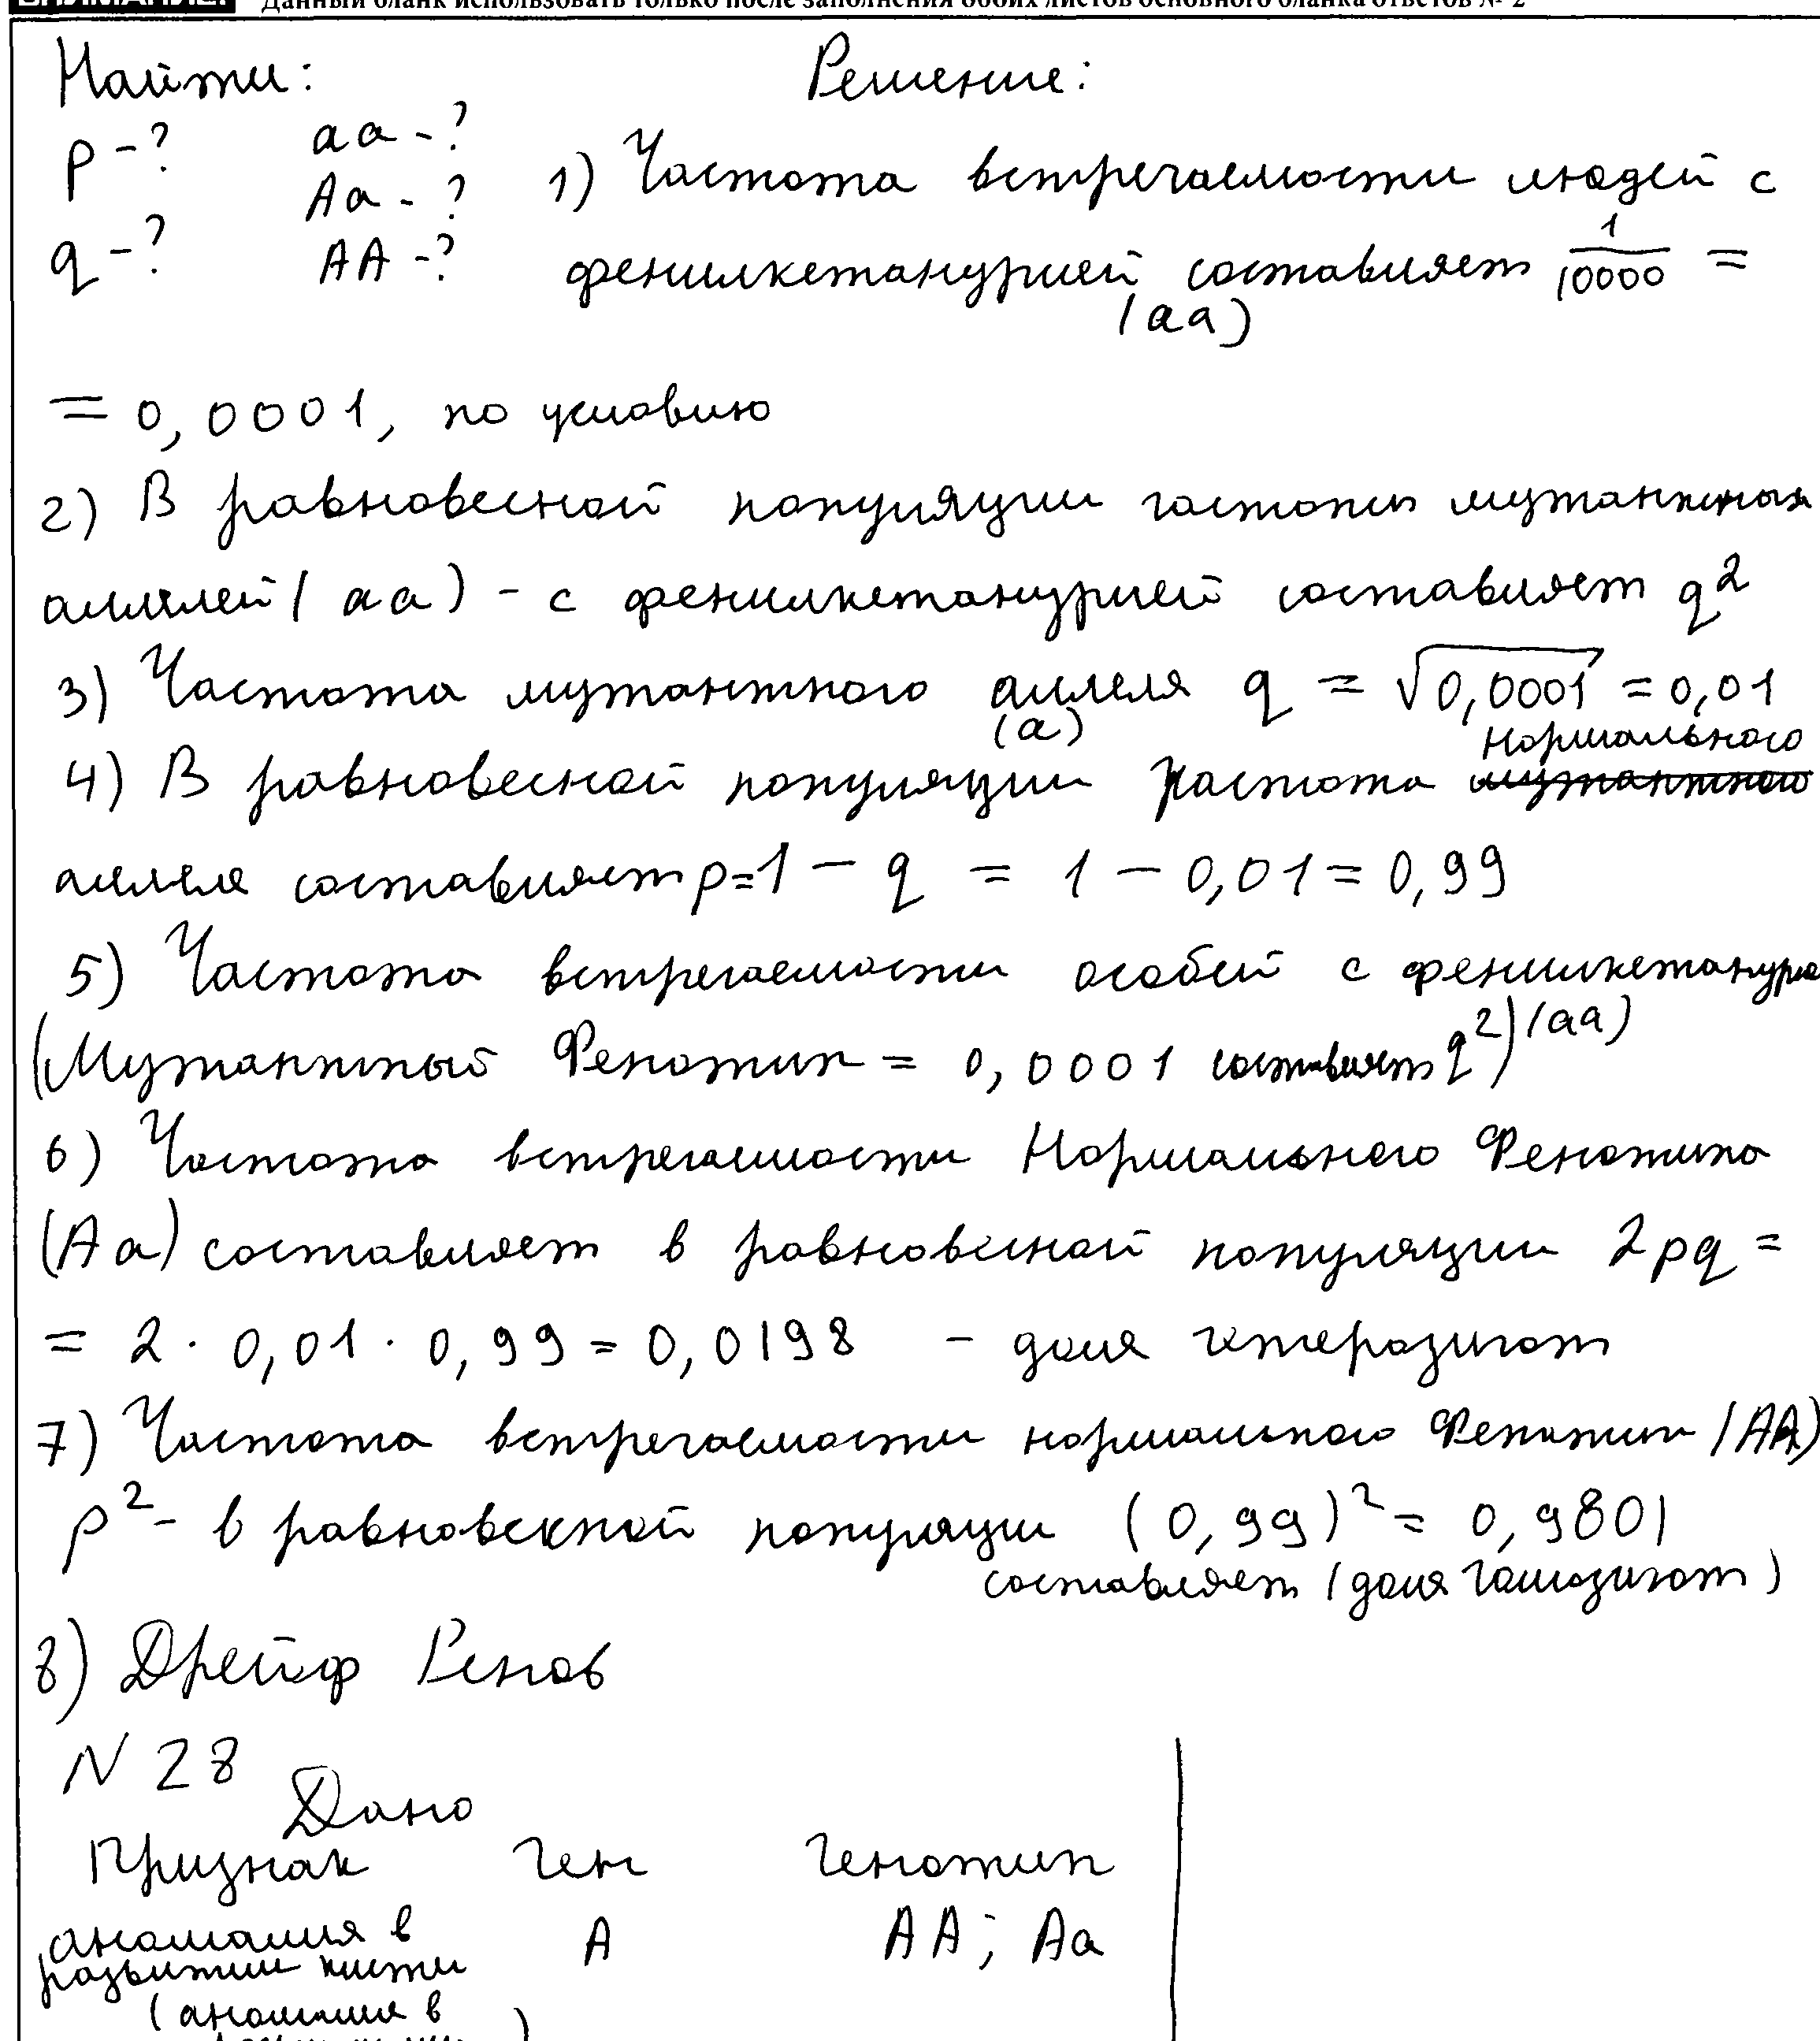 Данный бланк использовать только после заполнения обоих листов основного бланка ответов № 2
Найти: Решение:
p - ? aa - ?
Aa - ?
q - ? AA - ?
1) Частота встречаемости людей с
фенилкетанурией (aa) составляет 1/10000 =
= 0,0001, по условию
2) В равновесной популяции частоты мутантных
аллелей (aa) - с фенилкетанурией составляет q²
3) Частота мутантного аллеля (a) q = √0,0001 = 0,01
4) В равновесной популяции частота нормального
аллеля составляет p = 1 - q = 1 - 0,01 = 0,99
5) Частота встречаемости особей с фенилкетанурие
(Мутантный Фенотип = 0,0001 составляет q²) (aa)
6) Частота встречаемости Нормального Фенотипа
(Aa) составляет в равновесной популяции 2pq =
= 2 · 0,01 · 0,99 = 0,0198 - доля гетерозигот
7) Частота встречаемости нормального Фенотип (AA)
p² - в равновескной популяции (0,99)² = 0,9801
составляет (доля гомозигот)
8) Дрейф Генов
N 28
Дано
Признак Ген Генотип
аномалия в A AA; Aa
развитии кисти
(аномалия в